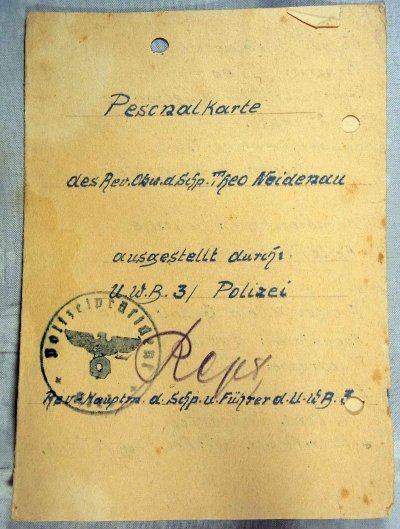 Pesonalkarte
des Rev.Obw.d.Schp. Theo Neidenau
ausgestellt durch:
U.W.B. 3/ Polizei
Polizeipräsident
Rev.=Hauptm. d. Schp. u. Führer d. U.W.B. 3